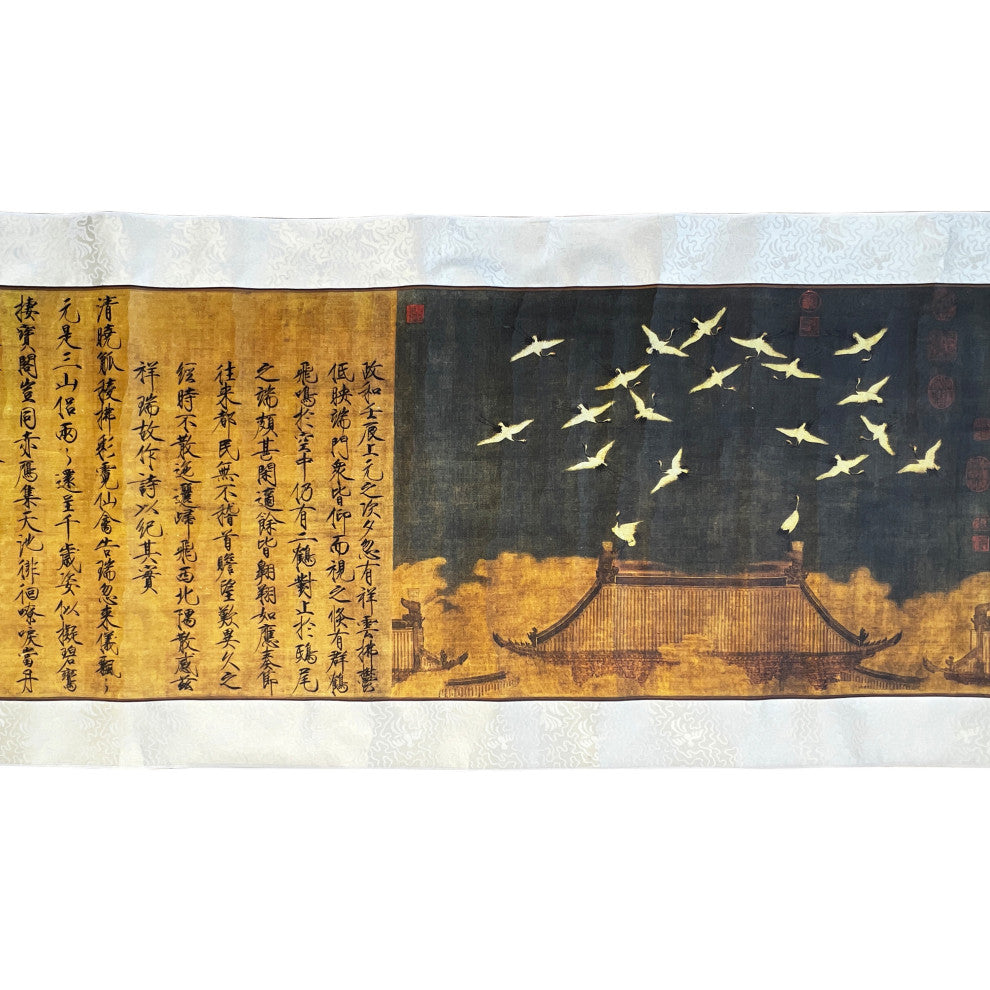 政和壬辰上元之次夕忽有祥雲拂欝
低映端門衆皆仰而視之倏有群鶴
飛鳴於空中仍有二鶴對止於鴟尾
之端頗甚閑適餘皆翺翔如應奏節
往来都民無不稽首瞻望歎異久之
經時不散迤邐歸飛西北隅散感茲
祥瑞故作詩以紀其實
清曉觚稜拂彩霓仙禽告瑞忽来儀飄〻
元是三山侶兩〻還呈千歲姿似擬碧鸞
棲寶閣豈同赤鴈集天池徘徊嘹唳當丹